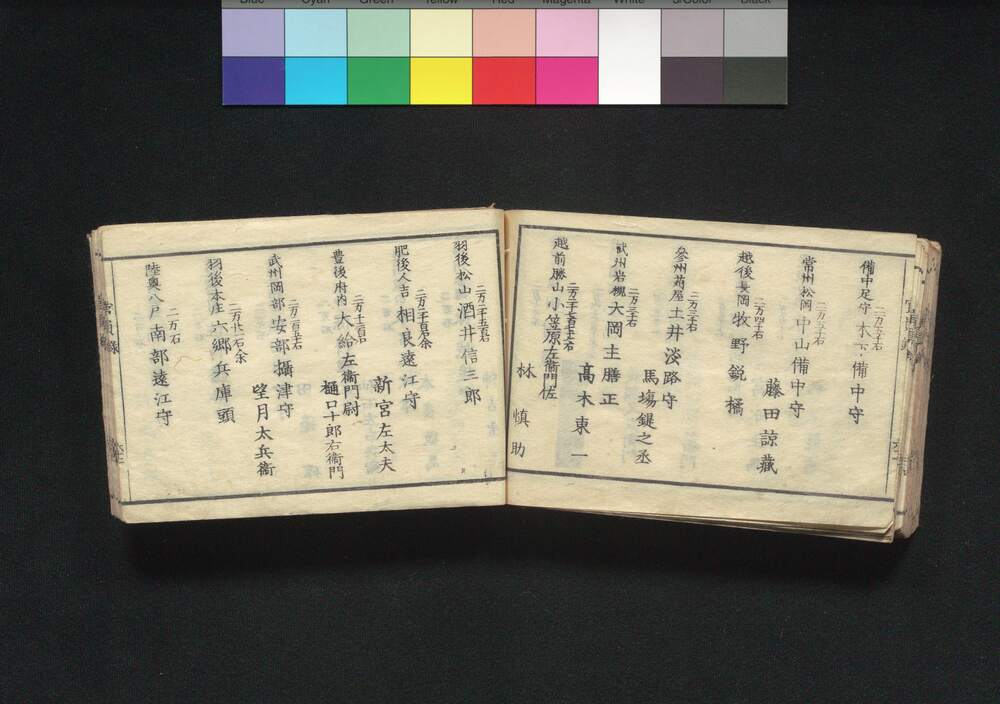 Blue Cyan Green Yellow Red Magenta White 3/Color Black
備中足守 二万五千石 木下備中守
常州松岡 二万五千石 中山備中守
藤田諒蔵
越後長岡 二万四千石 牧野鋭橘
参州苅屋 二万三千石 土井淡路守
馬場鍵之丞
武州岩槻 二万三千石 大岡主膳正
髙木東一
越前勝山 二万二千七百七十七石 小笠原左衞門佐
林慎助
羽後松山 二万二千五百石 酒井信三郎
肥後人吉 二万二千百石余 相良遠江守
新宮左太夫
豊後府内 二万千二百石 大給左衞門尉
樋口十郎右衞門
武州岡部 二万二百五十石 安部攝津守
望月太兵衞
羽後本庄 二万廿一石余 六郷兵庫頭
陸奥八戸 二万石 南部遠江守